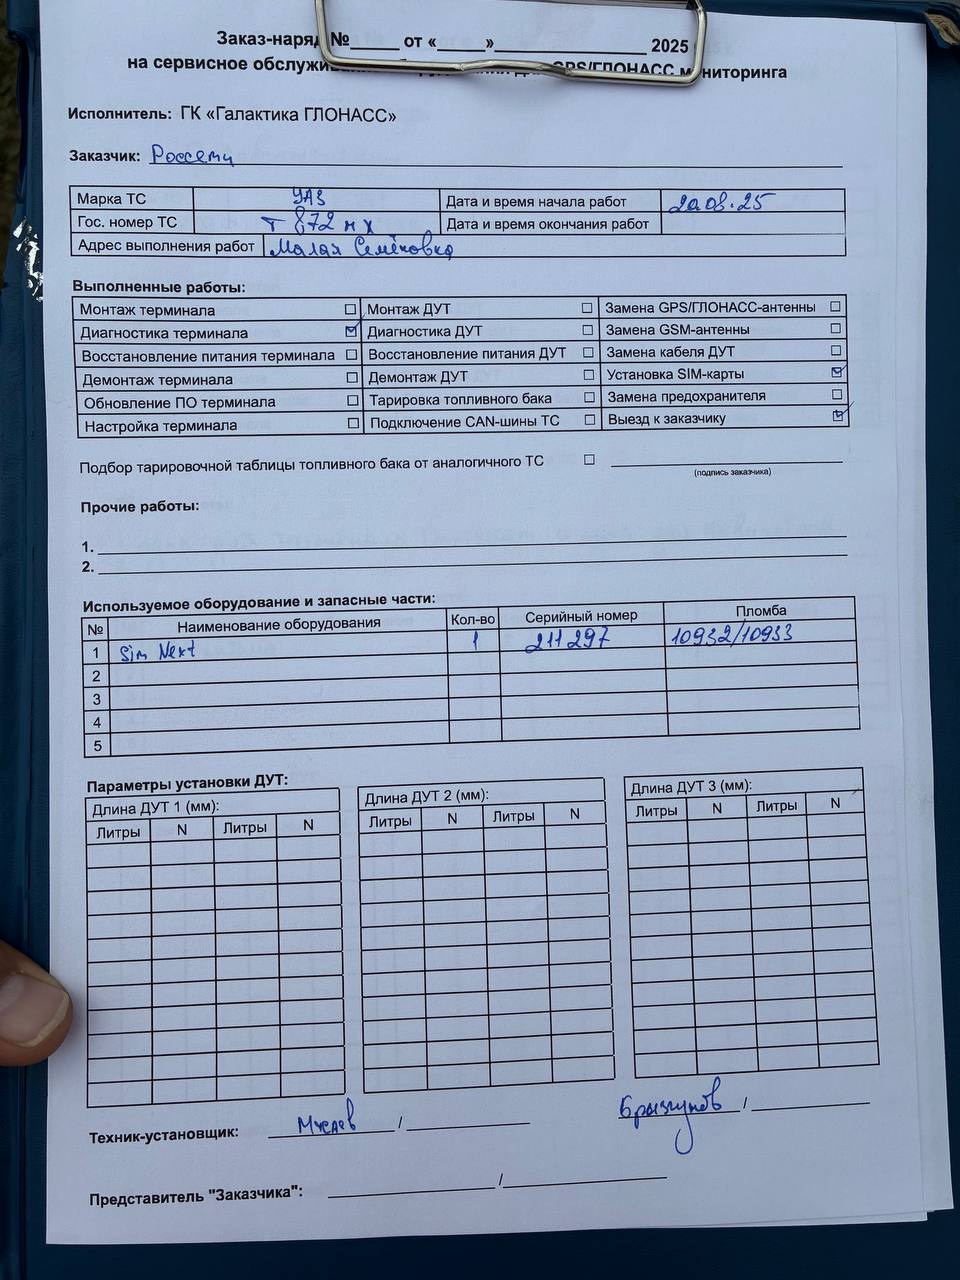 Заказ-наряд №_____ от «_____»________________ 2025
на сервисное обслужи GPS/ГЛОНАСС мониторинга
Исполнитель: ГК «Галактика ГЛОНАСС»
Заказчик: Россети
Марка ТС УАЗ Дата и время начала работ 20.08.25
Гос. номер ТС т 872 нх Дата и время окончания работ
Адрес выполнения работ Малая Семёновка
Выполненные работы:
Монтаж терминала ☐ Монтаж ДУТ ☐ Замена GPS/ГЛОНАСС-антенны ☐
Диагностика терминала ☑ Диагностика ДУТ ☐ Замена GSM-антенны ☐
Восстановление питания терминала ☐ Восстановление питания ДУТ ☐ Замена кабеля ДУТ ☐
Демонтаж терминала ☐ Демонтаж ДУТ ☐ Установка SIM-карты ☑
Обновление ПО терминала ☐ Тарировка топливного бака ☐ Замена предохранителя ☐
Настройка терминала ☐ Подключение CAN-шины ТС ☐ Выезд к заказчику ☑
Подбор тарировочной таблицы топливного бака от аналогичного ТС ☐
(подпись заказчика)
Прочие работы:
1.
2.
Используемое оборудование и запасные части:
№ Наименование оборудования Кол-во Серийный номер Пломба
1 Sim Next 1 211297 10932/10933
2
3
4
5
Параметры установки ДУТ:
Длина ДУТ 1 (мм): Длина ДУТ 2 (мм): Длина ДУТ 3 (мм):
Литры N Литры N Литры N Литры N Литры N Литры N
Техник-установщик: / Брызгунов /
Представитель "Заказчика": /